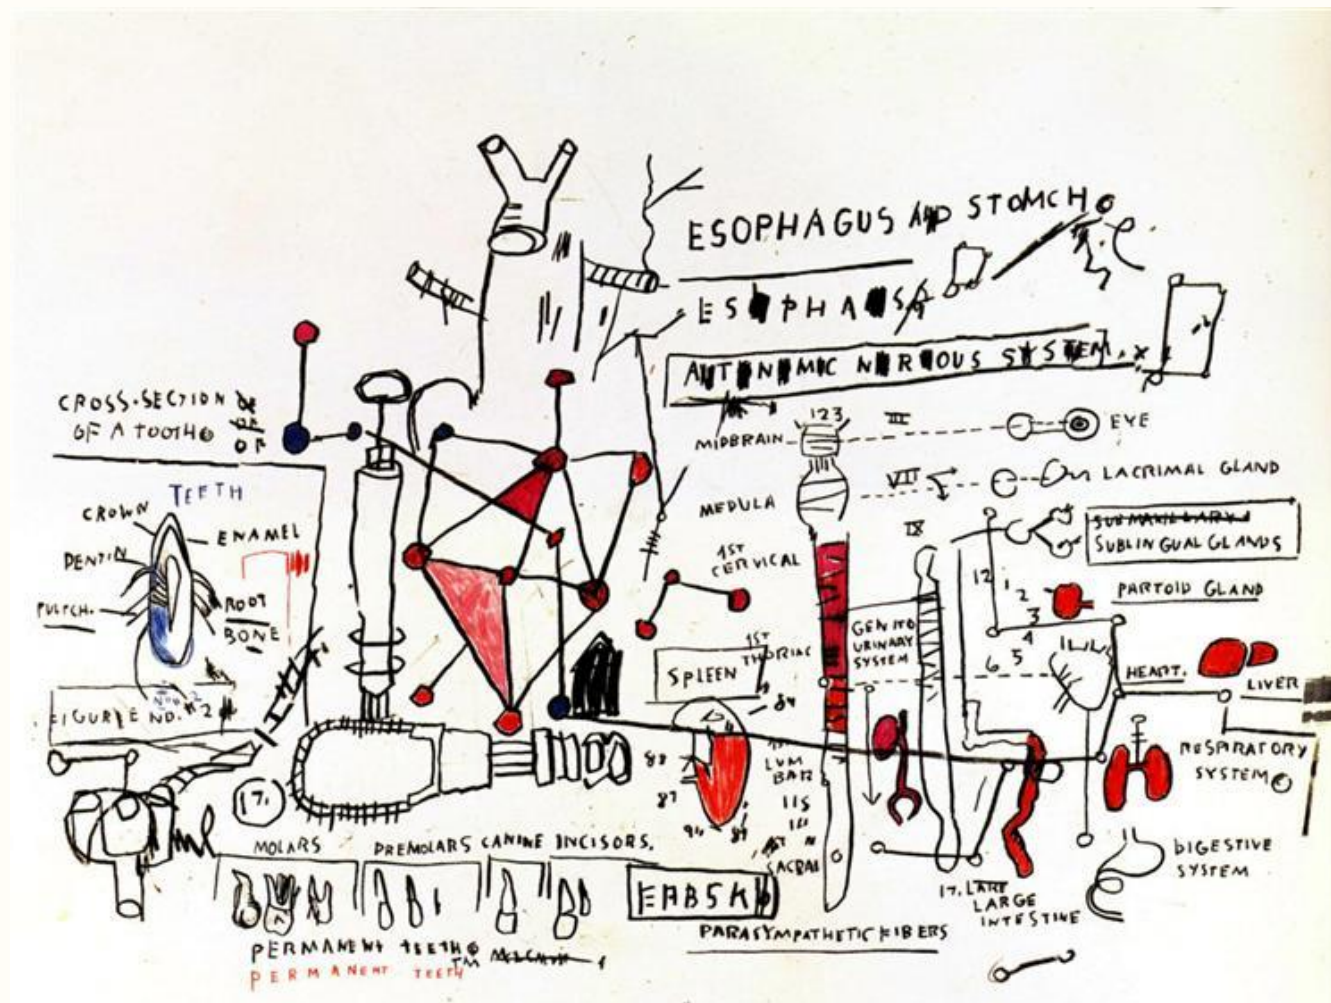 ESOPHAGUS AND STOMCH
ESOPHAGUS
AUTONOMIC NERVOUS SYSTEM.
CROSS-SECTION OF
OF A TOOTH OF
OF
TEETH
CROWN
ENAMEL
DENTIN
PULPCH.
ROOT
BONE
FIGURE NO. 2
17.
MOLARS PREMOLARS CANINE INCISORS.
PERMANENT TEETH
TM
PERMANENT TEETH
123
III
EYE
MIDBRAIN
VII
LACRIMAL GLAND
MEDULA
IX
SUBMAXILLARY
SUBLINGUAL GLANDS
1ST
CERVICAL
12
1
2
3
4
5
6
PARTOID GLAND
GENITO
URINARY
SYSTEM
1ST
THORIAC
SPLEEN
HEART.
LIVER
89
88
87
LUM
BAR
115
SACRAL
RESPIRATORY
SYSTEM
DIGESTIVE
SYSTEM
17. LARE
LARGE
INTESTINE
PARASYMPATHETIC FIBERS